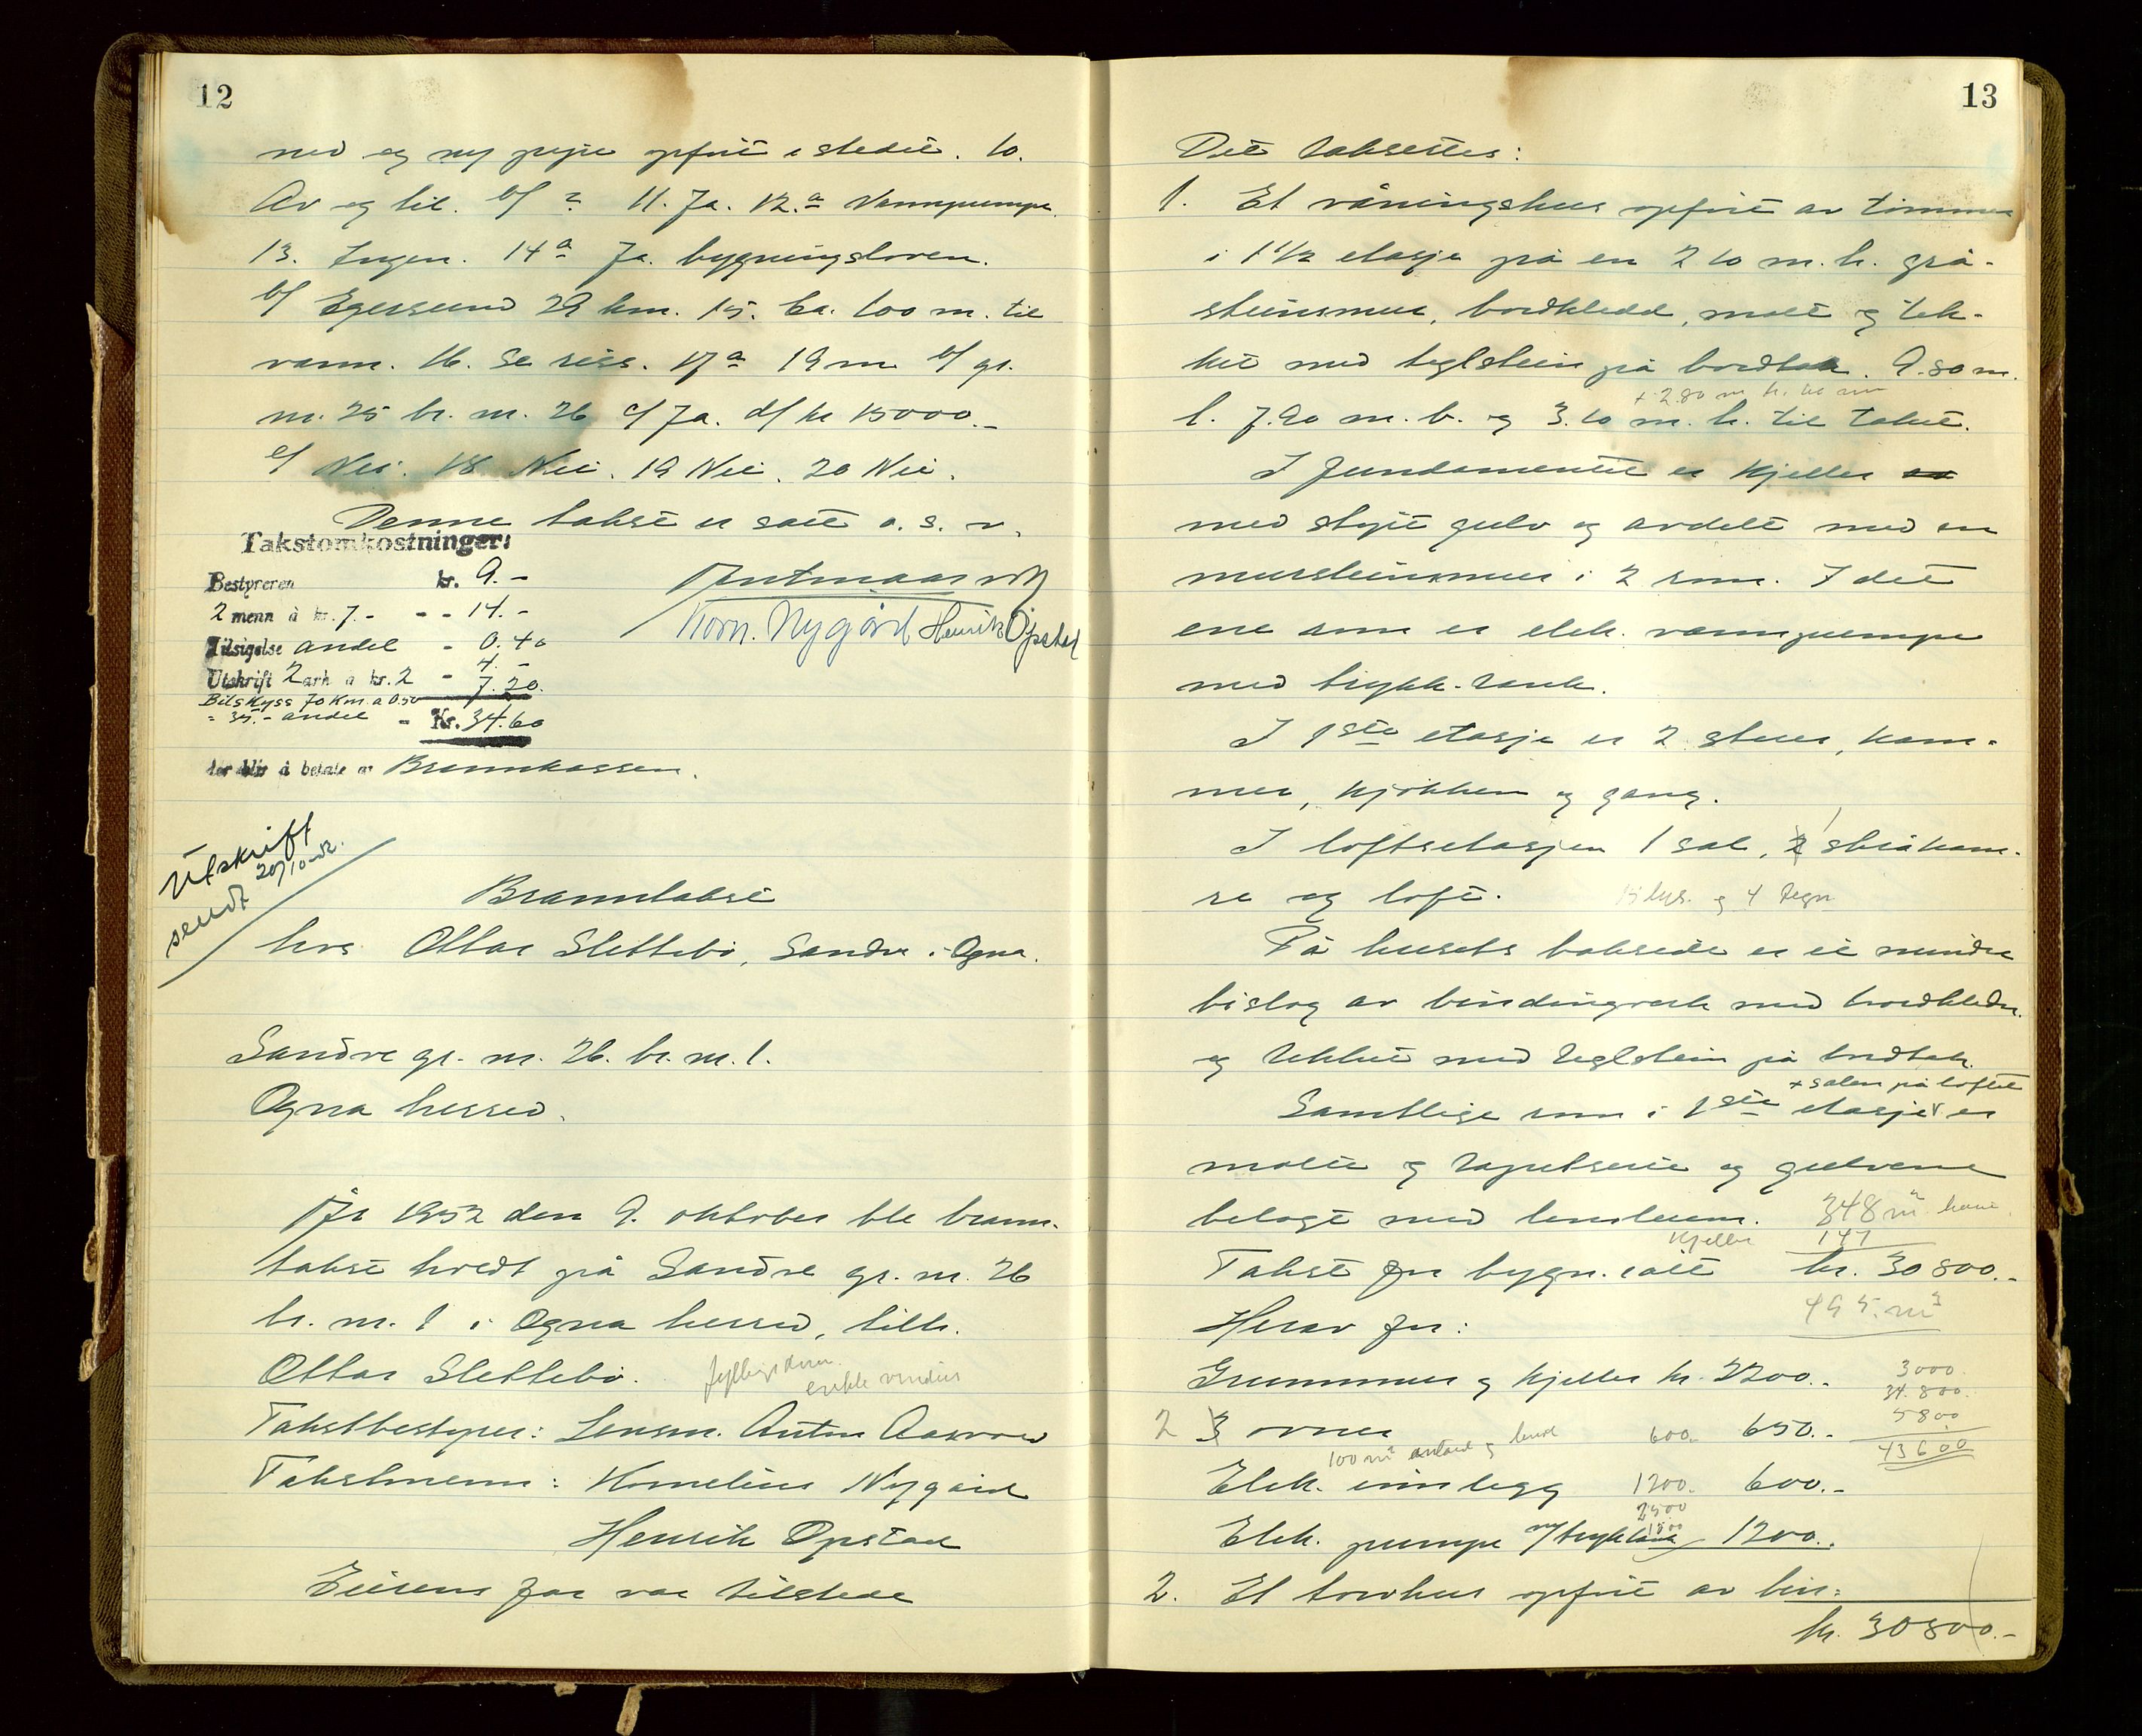 12
ned og ny pipe opført i stedet. 10.
Av og til. b/ 2 11. Ja. 12.a Vannpumpe.
13. Ingen. 14a Ja. bygningsloven.
b/ Egersund 29 km. 15. Ca. 100 m. til
vann. 16. Se riss. 17a 19 m b/ gr.
nr. 25 br. nr. 26 c/ Ja. d/ kr 15000.-
e/ Nei. 18 Nei. 19 Nei. 20 Nei.
Denne takst er satt o. s. v.
Takstomkostninger:
Bestyreren kr. 9.-
2 menn à kr. 7.- - - 14.-
Tilsigelse andel - 0.40
Utskrift 2 ark à kr. 2 - 4.-
Bilskyss 70 km. a 0.50 7.20.
= 35.- andel - Kr. 34.60
der blir å betale av Brannkassen.
Korn. Nygård Henrik Opstad
Utskrift
sendt 20/10-52.
Branntakst
hos Ottar Slettebø, Sandve i Ogna.
Sandve gr. nr. 26. br. nr. 1.
Ogna herred.
År 1952 den 9. oktober ble brann-
takst holdt på Sandve gr. nr. 26
br. nr. 1 i Ogna herred, tilh.
Ottar Slettebø.
enkle vinduer
Takstbestyrer: Lensm. Anton Aasrød
Takstmenn: Kornelius Nygård
Henrik Opstad
Eierens far var tilstede
13
Det takseres:
1. Et våningshus opført av tømmer
i 1 1/2 etasje på en 2.10 m. h. grå-
steinsmur, bordkledd, malt og tek-
ket med teglstein på bordtak. 9.80 m.
+ 2.80 m h. til
l. 7.90 m. b. og 3.10 m. h. til taket.
I fundamentet er kjeller
med støpt gulv og avdelt med en
mursteinsmur i 2 rom. I det
ene rom er elek. vannpumpe
med trykk-tank.
I 1ste etasje er 2 stuer, kam-
mer, kjøkken og gang.
I loftsetasjen 1 sal, 2 skråkam-
re og loft.
15 lys. og 4
På husets bakside er et mindre
bislag av bindingverk med bordkledn.
og tekket med teglstein på bordtak.
+ salen på loftet
Samtlige rom i 1ste etasje er
malte og tapetserte og gulvene
belagt med linoleum. 348 m2
Kjeller 147
Takst for bygn. i alt kr. 30 800.-
495. m3
Herav for:
Grunnmur og kjeller kr. 2200.- 3000.
34.800.
2 3 ovner 600.- 650.- 5800
100 m2 43600
Elek. innlegg 1200. 600.-
2500
1800
Elek. pumpe m/ trykktank 1200.-
2. Et torvhus opført av bin-
kr. 30800.-